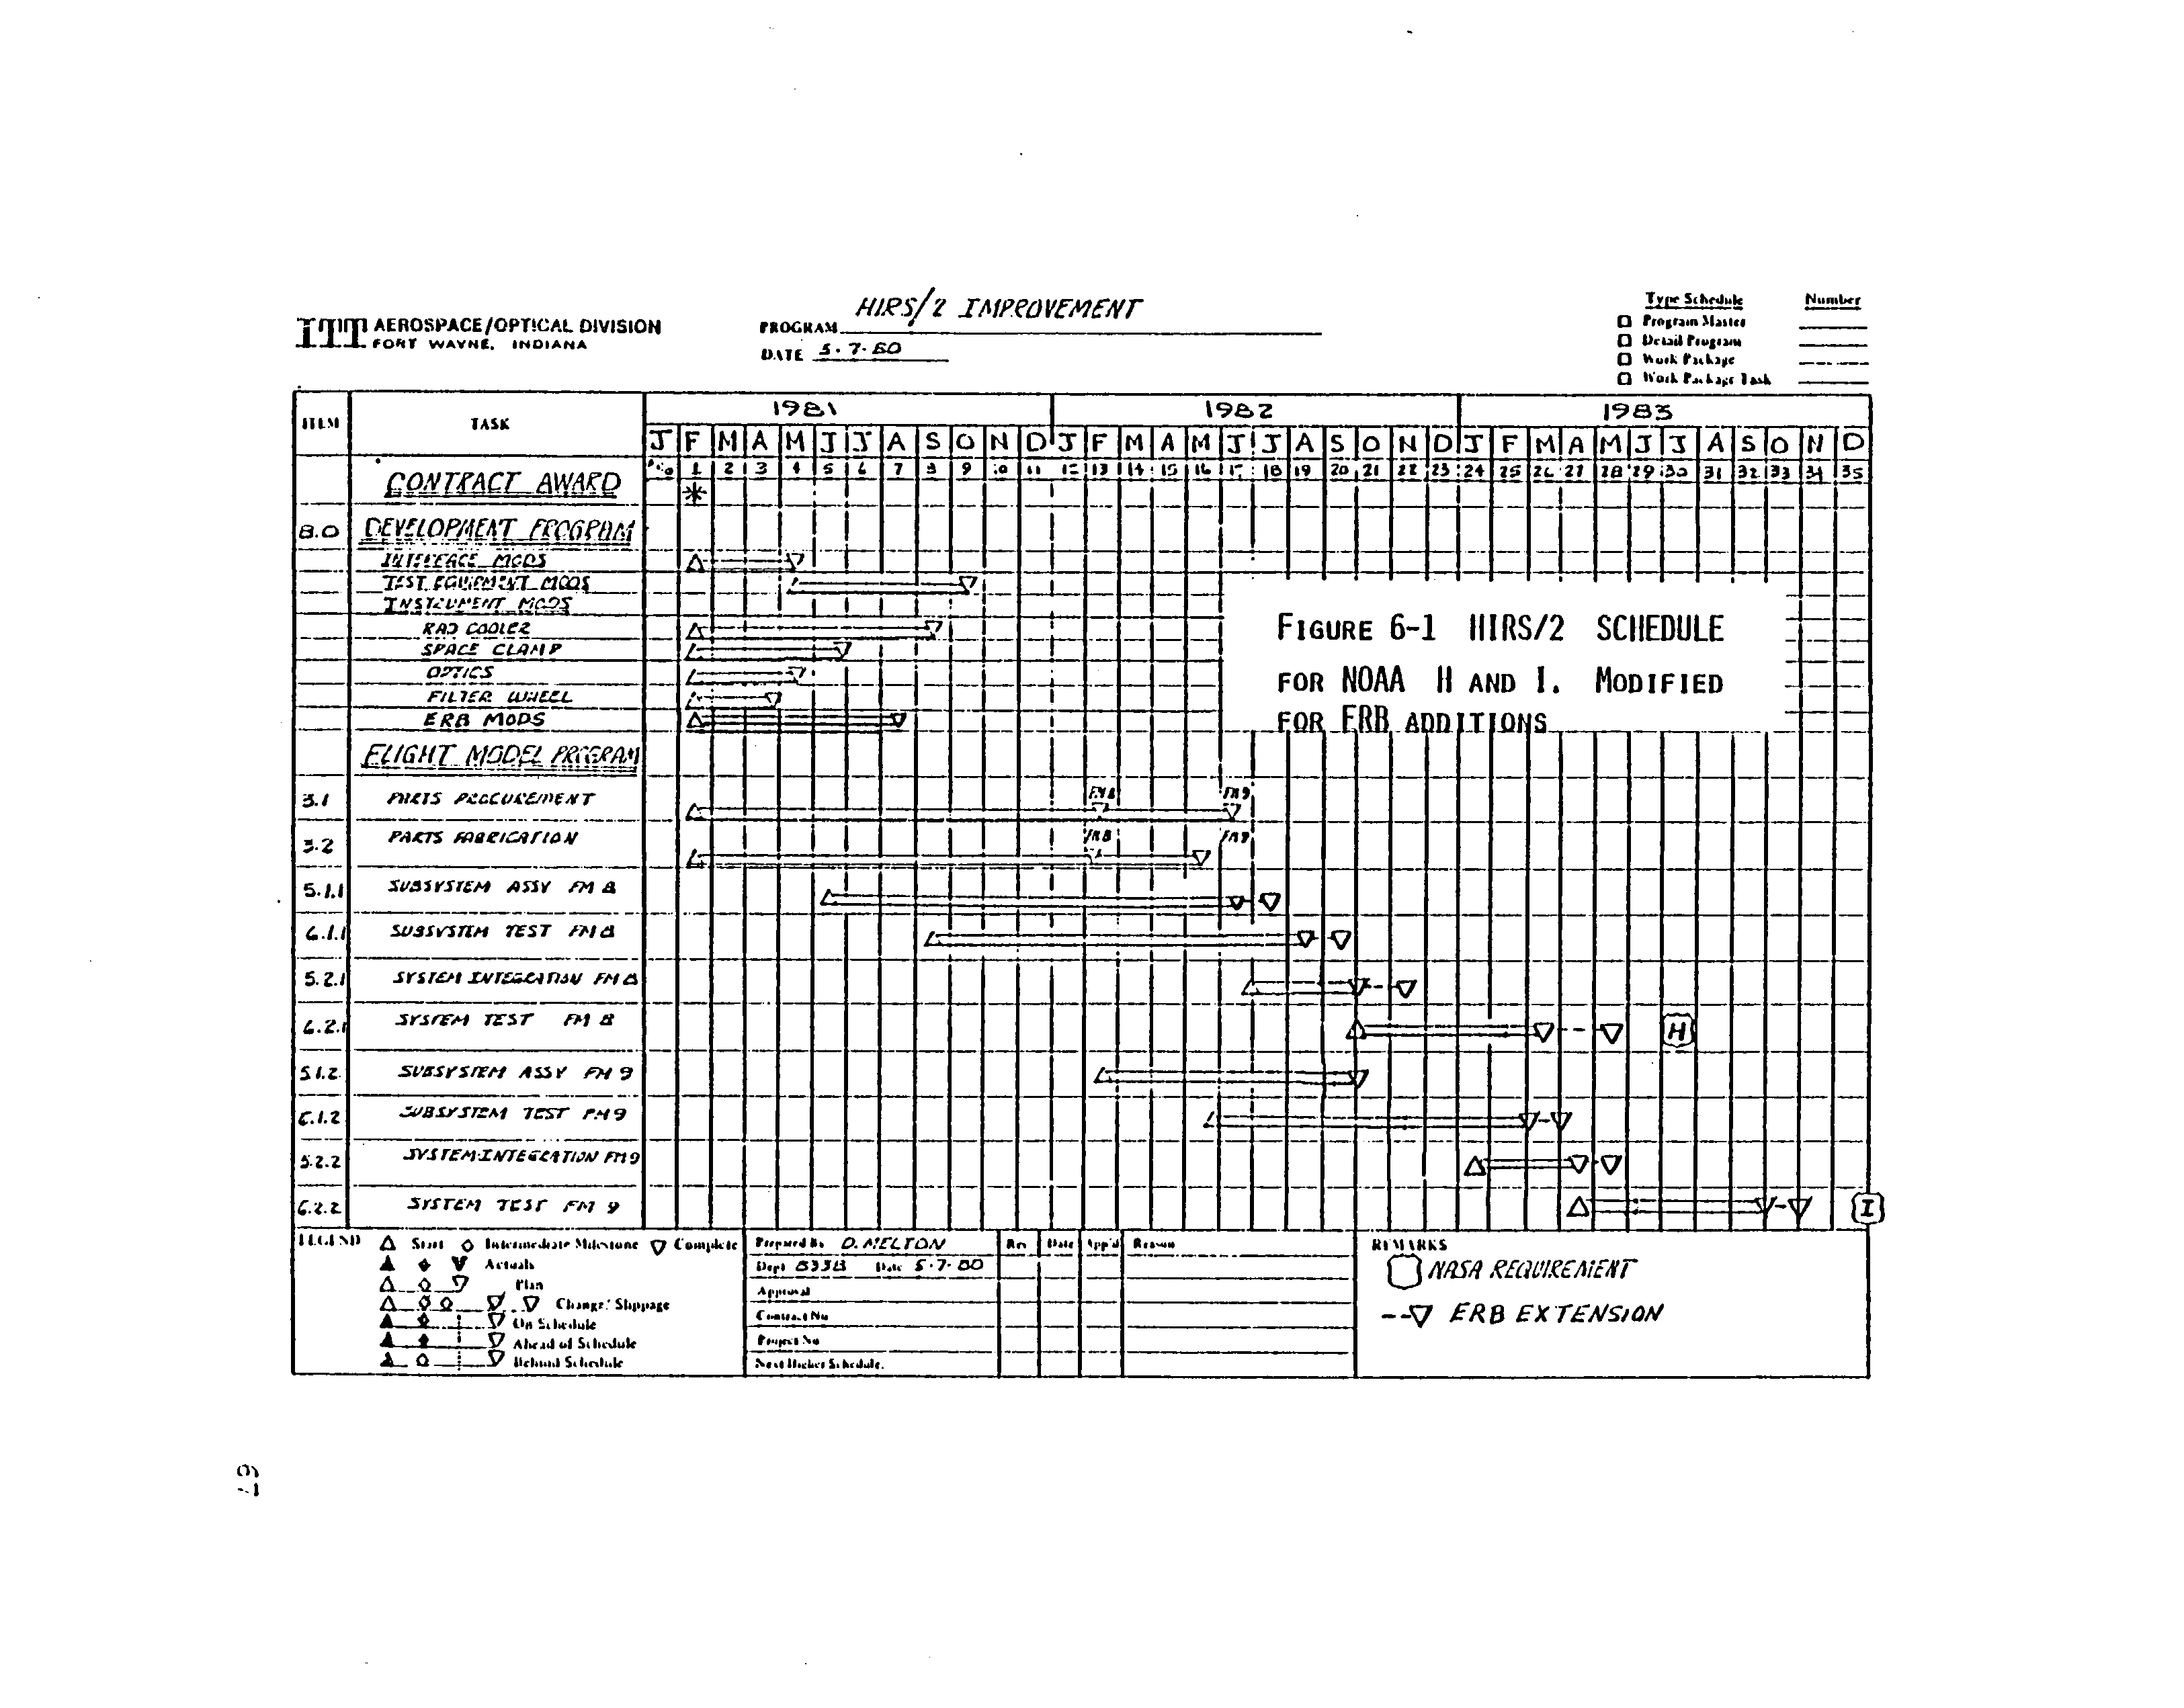 ITT AEROSPACE/OPTICAL DIVISION
FORT WAYNE, INDIANA
PROGRAM HIRS/2 IMPROVEMENT
DATE 5-7-80
Type Schedule Number
Program Master
Detail Program
Work Package
Work Package Task
ITEM TASK 1981 1982 1983
J F M A M J J A S O N D J F M A M J J A S O N D J F M A M J J A S O N D
0 1 2 3 4 5 6 7 8 9 10 11 12 13 14 15 16 17 18 19 20 21 22 23 24 25 26 27 28 29 30 31 32 33 34 35
CONTRACT AWARD *
8.0 DEVELOPMENT PROGRAM
INTERFACE MODS
TEST EQUIPMENT MODS
INSTRUMENT MODS
RAD COOLER
SPACE CLAMP
OPTICS
FILTER WHEEL
ERB MODS
FIGURE 6-1 HIRS/2 SCHEDULE
FOR NOAA H AND I. MODIFIED
FOR ERB ADDITIONS
FLIGHT MODEL PROGRAM
3.1 PARTS PROCUREMENT FM8 FM9
3.2 PARTS FABRICATION FM8 FM9
5.1.1 SUBSYSTEM ASSY FM 8
6.1.1 SUBSYSTEM TEST FM 8
5.2.1 SYSTEM INTEGRATION FM 8
6.2.1 SYSTEM TEST FM 8 H
5.1.2 SUBSYSTEM ASSY FM 9
6.1.2 SUBSYSTEM TEST FM 9
5.2.2 SYSTEM INTEGRATION FM 9
6.2.2 SYSTEM TEST FM 9 I
LEGEND
Start Intermediate Milestone Complete
Actuals
Plan
Change/Slippage
On Schedule
Ahead of Schedule
Behind Schedule
Prepared By D. MELTON
Dept 8338 Date 5-7-80
Approval
Contract No
Project No
Next Higher Schedule
Rev Date App'd Reason
REMARKS
NASA REQUIREMENT
--▽ ERB EXTENSION
67